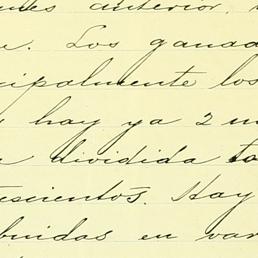 anterior,
. Los ganad
cipalmente los
hay ya 2 m
dividida to
escientos. Hay
buidas en var